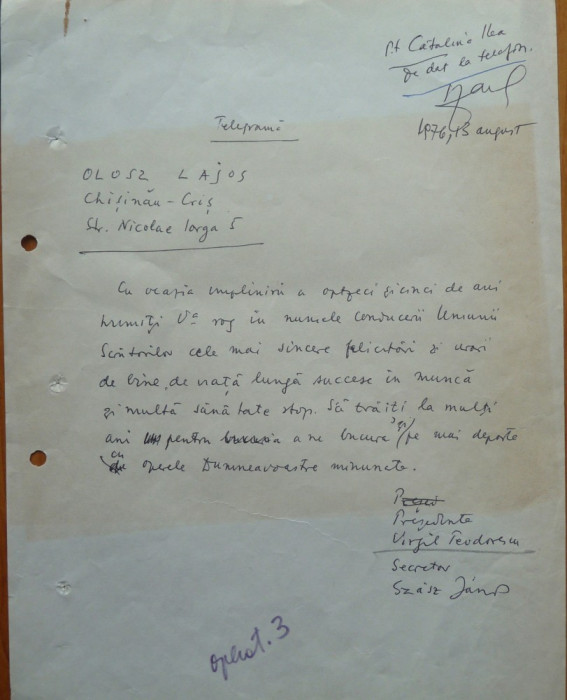 pt Cătălina Ilea
de dat la telefon.
1976, 13 august
Telegramă
OLOSZ LAJOS
Chişinău-Criş
Str. Nicolae Iorga 5
Cu ocazia împlinirii a optzeci şi cinci de ani
trimiţi Vă rog în numele conducerii Uniunii
Scriitorilor cele mai sincere felicitări şi urări
de bine, de viaţă lungă succese în muncă
şi multă sănătate stop. Să trăiţi la mulţi
ani pentru a ne bucura şi pe mai departe
cu operele Dumneavoastre minunate.
Preşedinte
Virgil Teodorescu
Secretar
Szász János
operat. 3